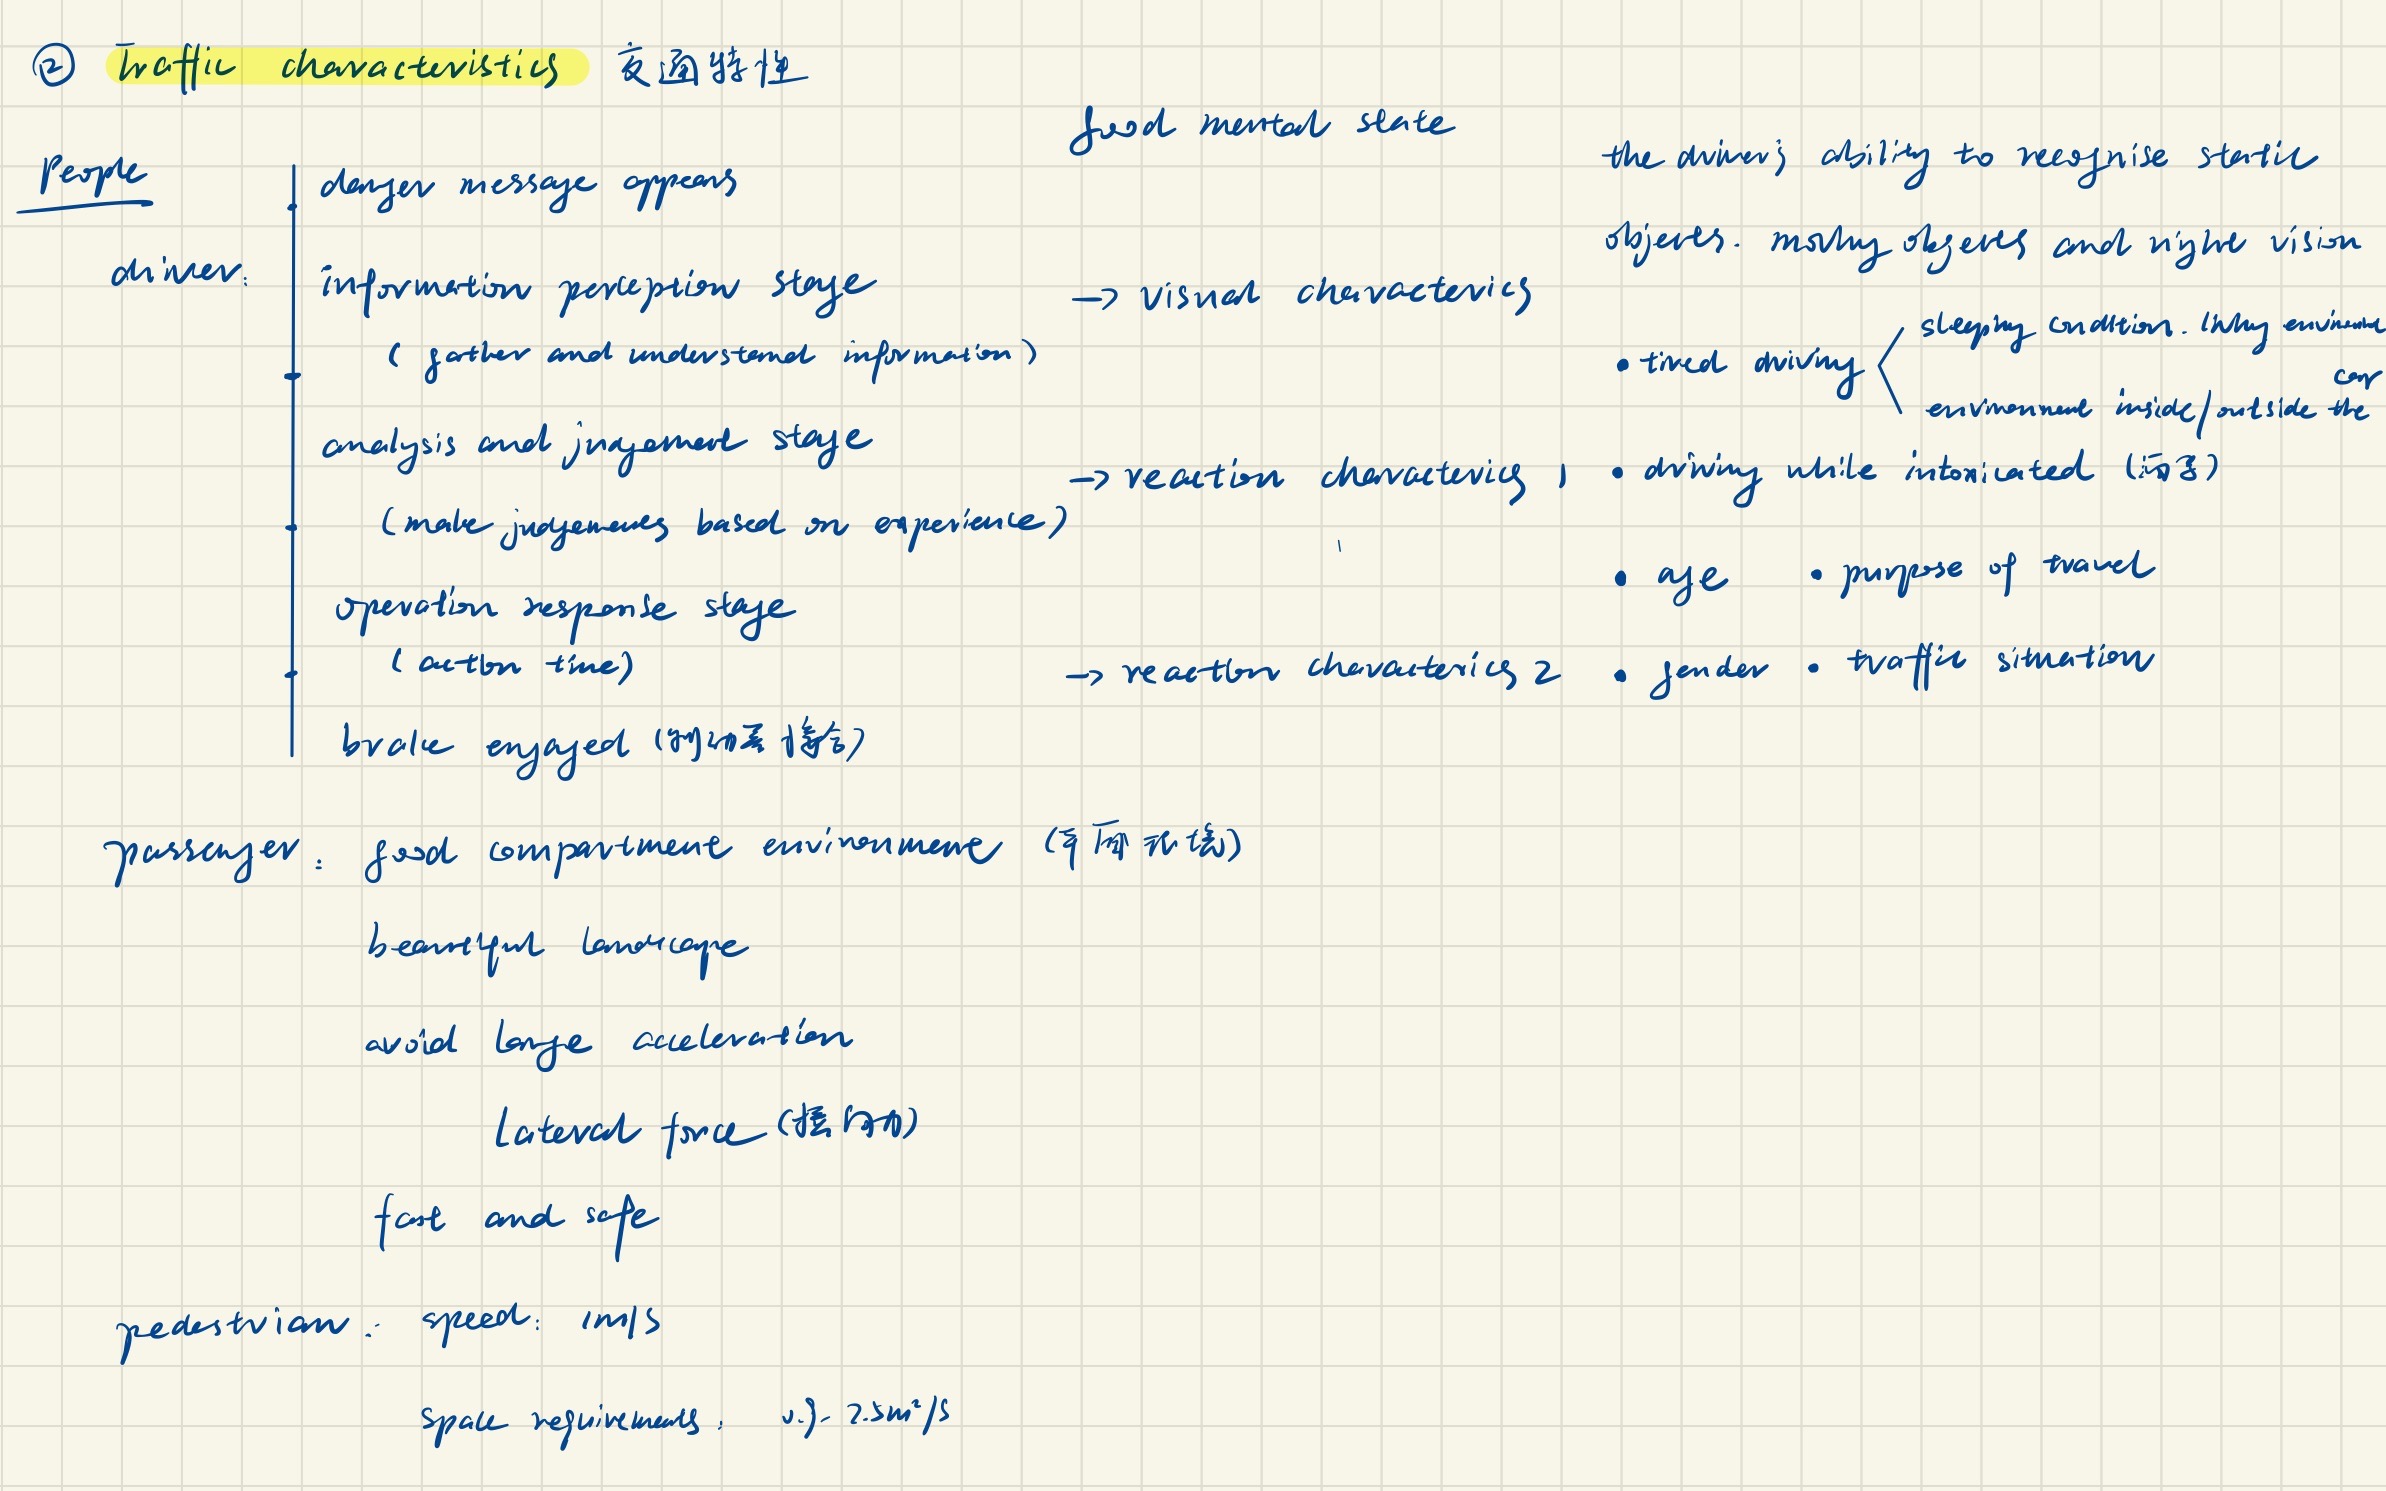 ② Traffic characteristics 交通特性
People
driver:
danger message appears
information perception stage
( gather and understand information )
analysis and judgement stage
(make judgements based on experience)
operation response stage
( action time)
brake engaged (制动器接合)
good mental state
→ visual characterics
→ reaction characterics 1
→ reaction characterics 2
the driver's ability to recognise static
objects. moving objects and night vision
• tired driving
sleeping condition. living
environment inside/outside the
car
• driving while intoxicated (酒驾)
• age • purpose of travel
• gender • traffic situation
passenger: good compartment environment (车厢环境)
beautiful landscape
avoid large acceleration
lateral force (横向力)
fast and safe
pedestrian: speed: 1m/s
space requirements: 2.5m²/s